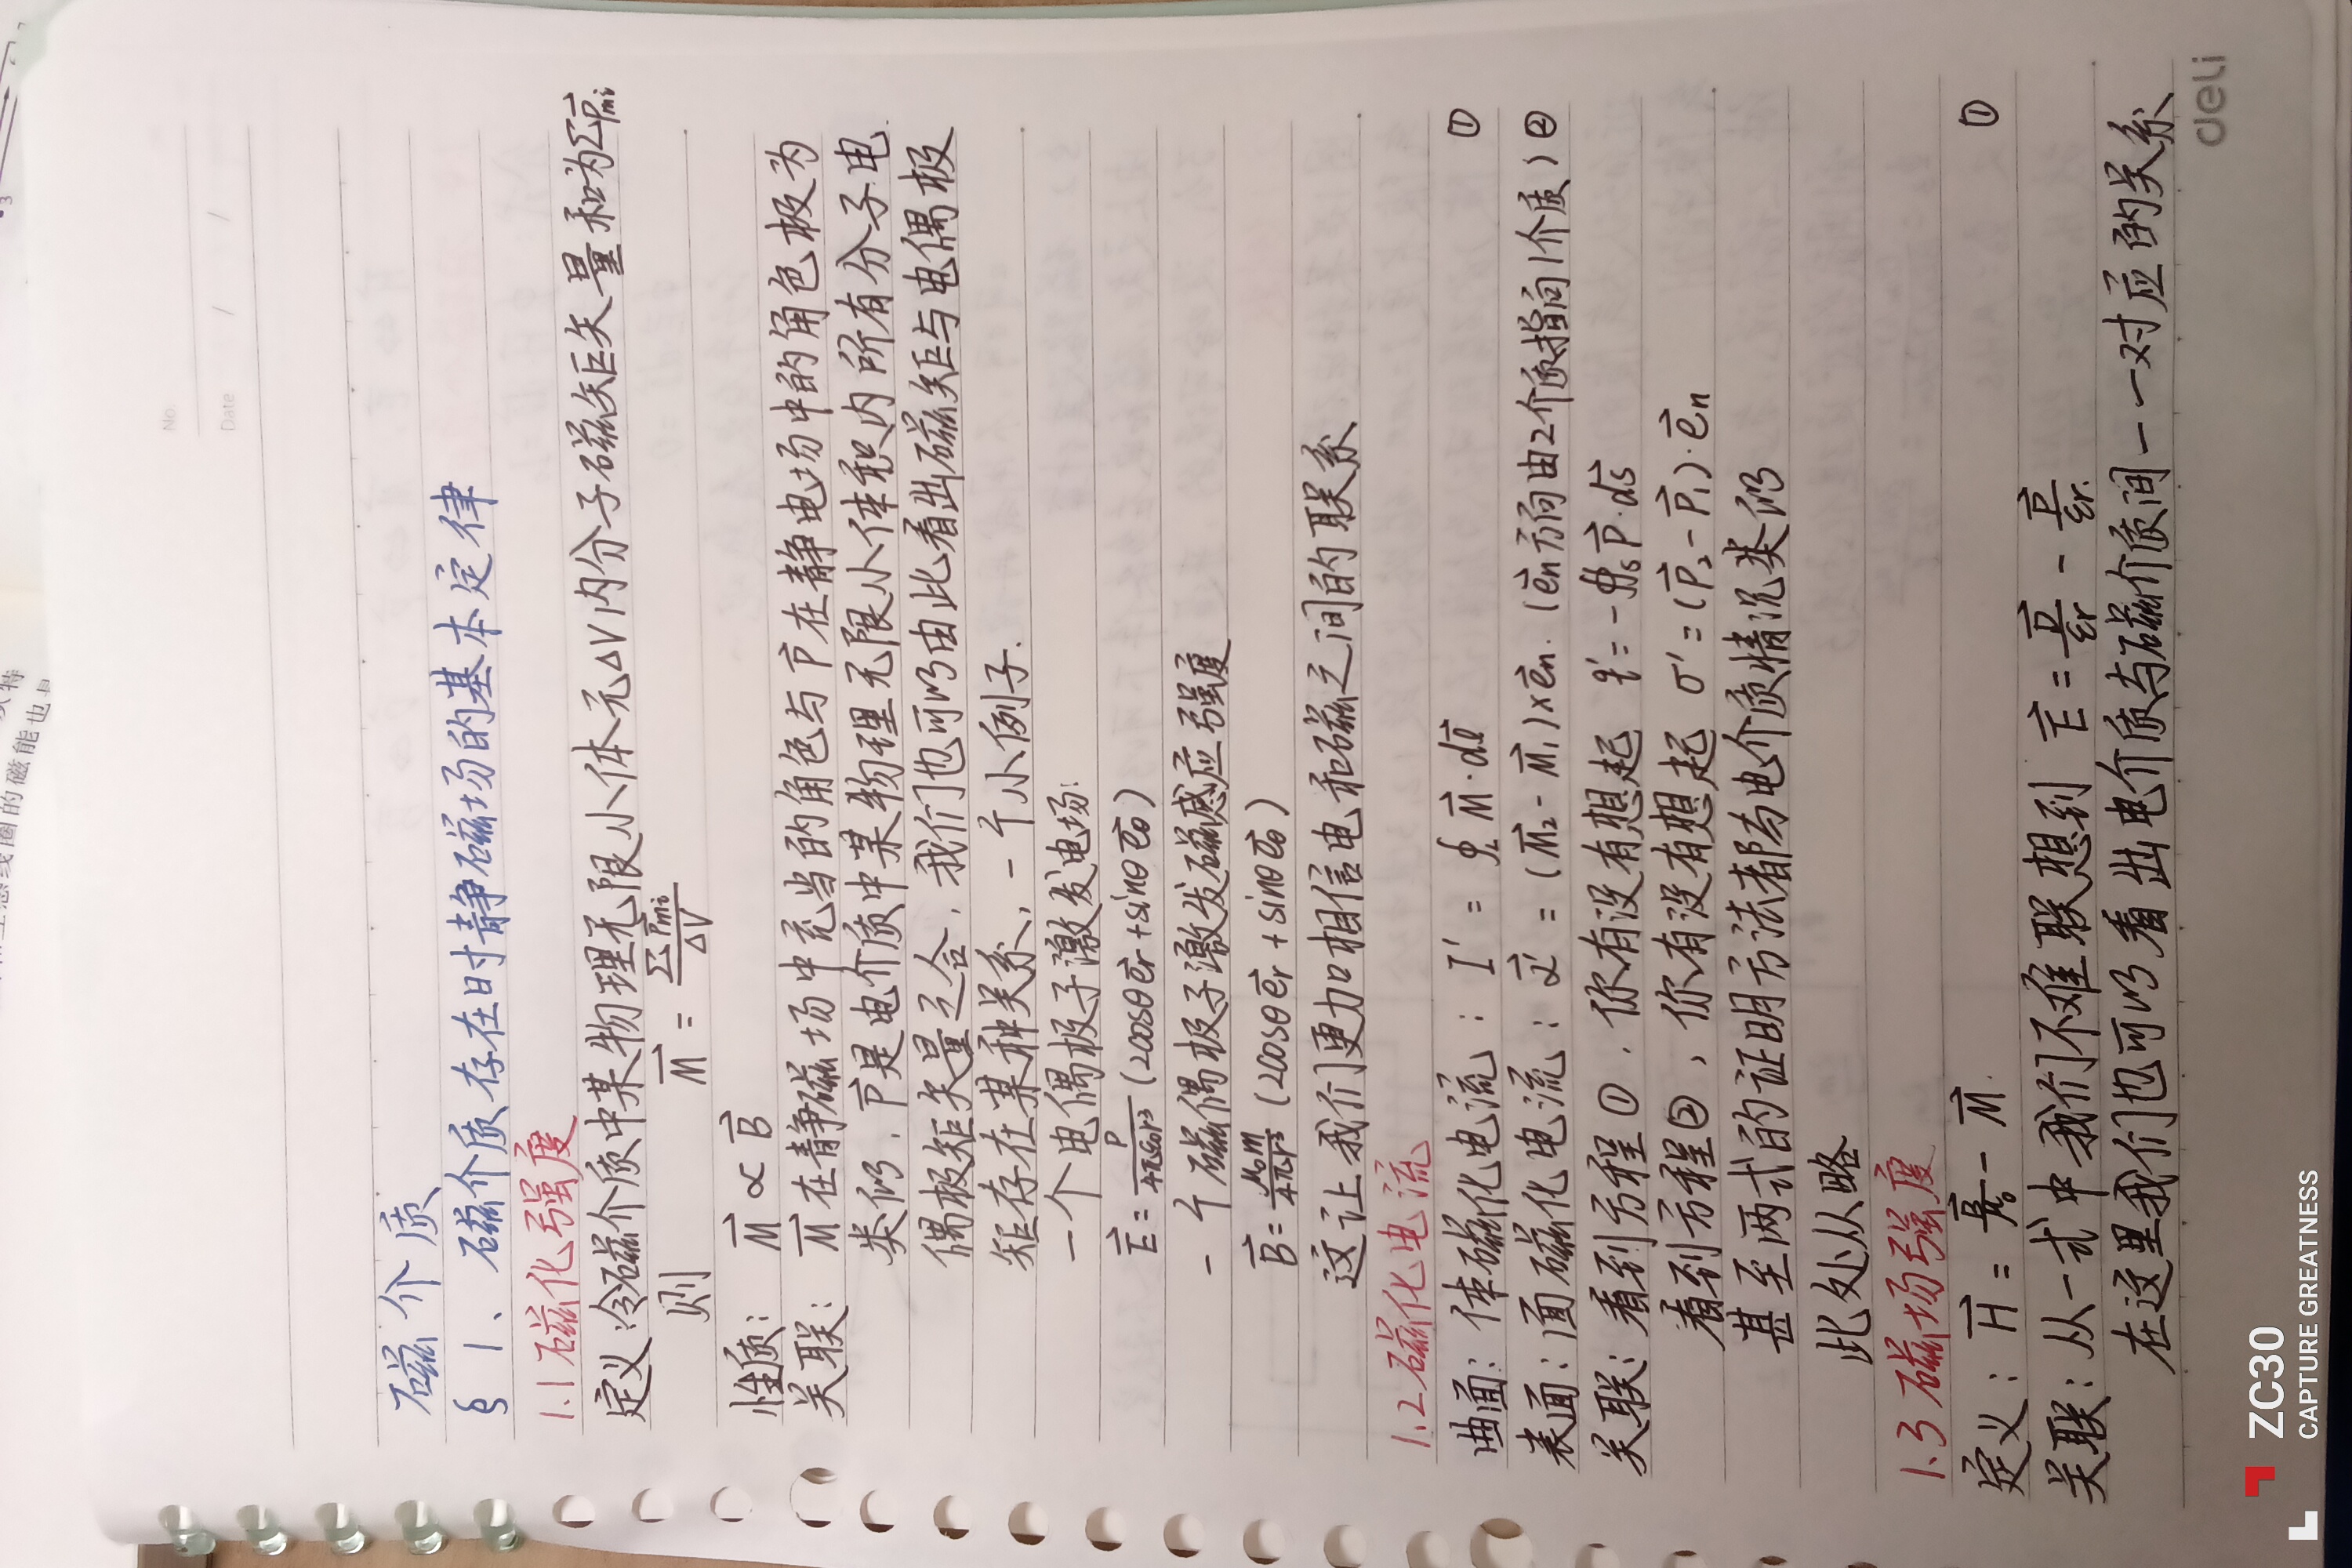 No.
Date / /
磁介质
§1、磁介质存在时静磁场的基本定律
1.1 磁化强度
定义:冷磁介质中某物理无限小体元ΔV内分子磁矩矢量和为∑P⃗mi
则 M⃗ = ∑P⃗mi/ΔV
性质: M⃗ ∝ B⃗
关联: M⃗在静磁场中充当的角色与P⃗在静电场中的角色极为
类似,P⃗是电介质中某物理无限小体积内所有分子电
偶极矩矢量之合,我们也可以由此看出磁矩与电偶极
矩存在某种关系、一个小例子.
一个电偶极子激发电场:
E⃗ = P/4πε₀r³ (2cosθe⃗r + sinθe⃗θ)
一个磁偶极子激发磁感应强度
B⃗ = μ₀m/4πr³ (2cosθe⃗r + sinθe⃗θ)
这让我们更加相信电和磁之间的联系
1.2 磁化电流
曲面: 体磁化电流: I' = ∮L M⃗·dl⃗ ①
表面: 面磁化电流: α⃗' = (M⃗₂ - M⃗₁)×e⃗n. (e⃗n方向由2介质指向1介质) ②
关联: 看到方程①,你有没有想起 q' = -∯s P⃗·ds⃗
看到方程②,你有没有想起 σ' = (P⃗₂ - P⃗₁)·e⃗n
甚至两式的证明方法都与电介质情况类似
此处从略
1.3 磁场强度
定义: H⃗ = B⃗/μ₀ - M⃗. ①
关联: 从一式中我们不难联想到 E⃗ = D⃗/εr - P⃗/εr.
在这里我们也可以看出电介质与磁介质间一一对应的关系
deli
ZC30
CAPTURE GREATNESS